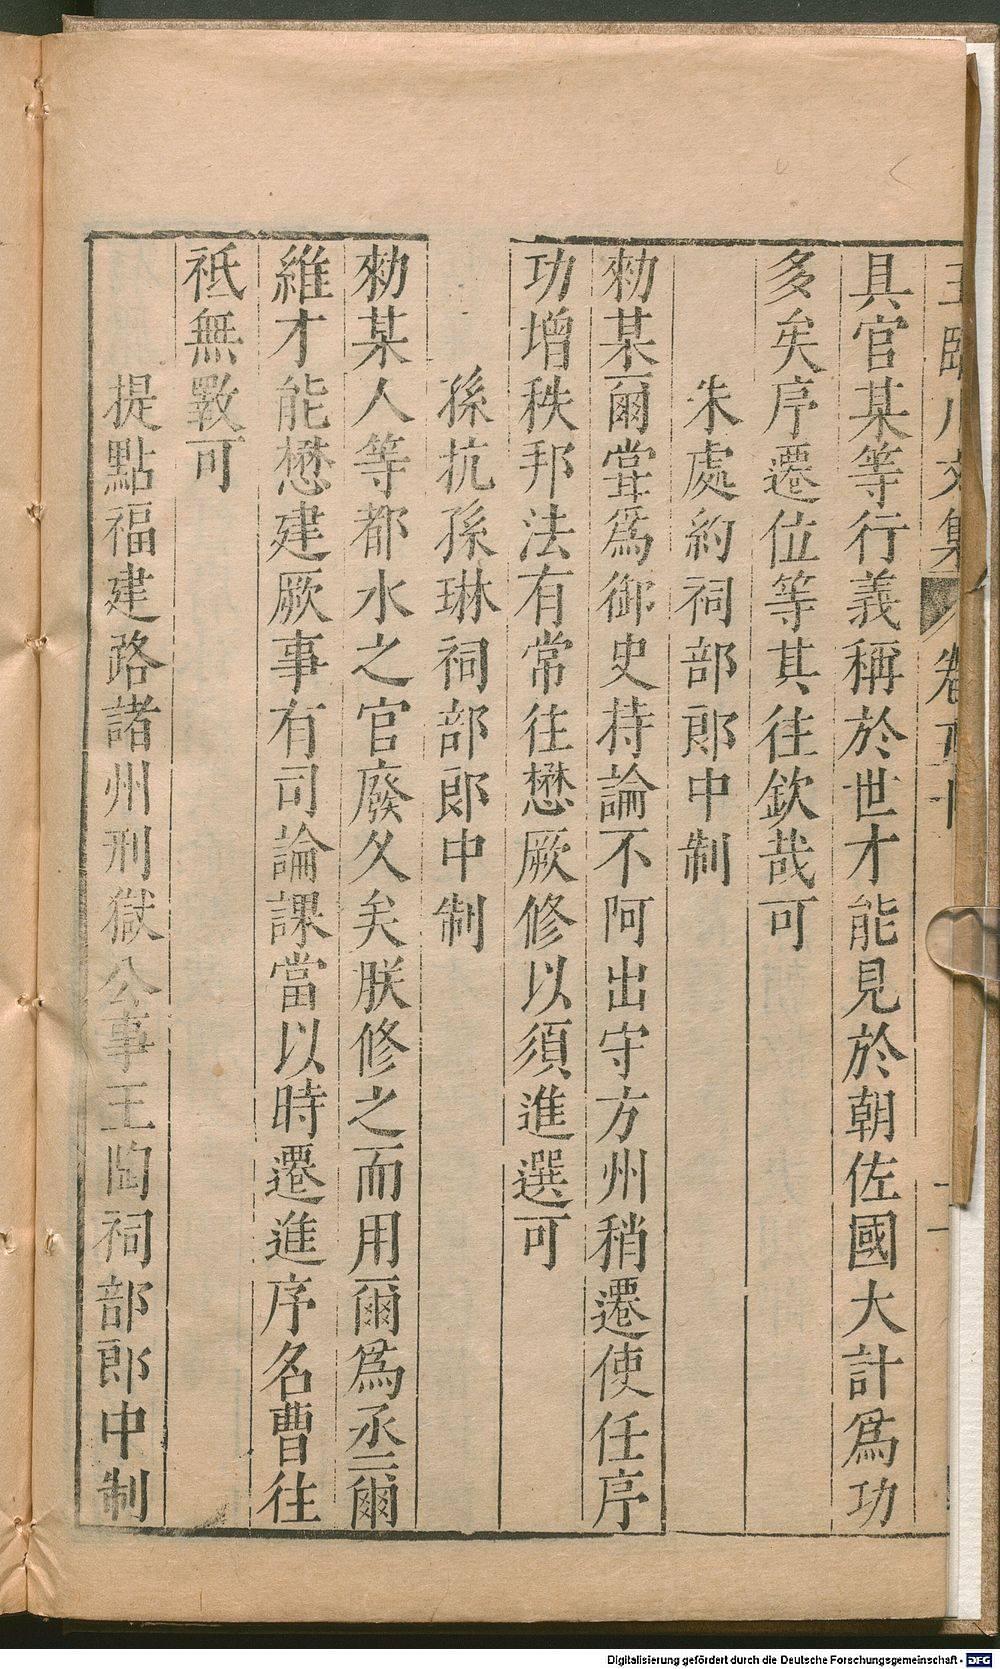 王臨川文集 卷五十 十一
具官某等行義稱於世才能見於朝佐國大計爲功
多矣序遷位等其往欽哉可
朱處約祠部郎中制
勑某爾甞爲御史持論不阿出守方州稍遷使任序
功增秩邦法有常往懋厥修以須進選可
孫抗孫琳祠部郎中制
勑某人等都水之官廢久矣朕修之而用爾爲丞爾
維才能懋建厥事有司論課當以時遷進序名曹往
祗無斁可
提點福建路諸州刑獄公事王陶祠部郎中制
Digitalisierung gefördert durch die Deutsche Forschungsgemeinschaft - DFG